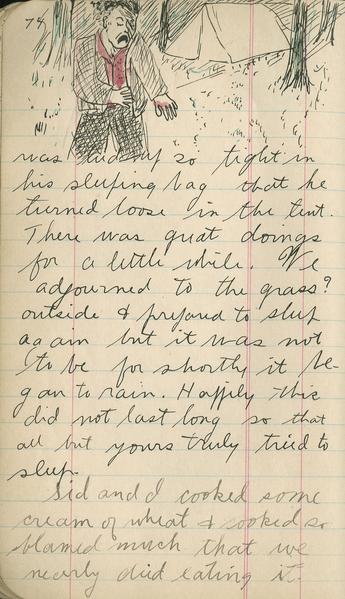 74
was laced up so tight in
his sleeping bag that he
turned loose in the tent.
There was great doings
for a little while. We
adjourned to the grass?
outside & prepared to sleep
again but it was not
to be for shortly it be-
gan to rain. Happily this
did not last long so that
all but yours truly tried to
sleep.
Sid and I cooked some
cream of wheat & cooked so
blamed much that we
nearly died eating it.